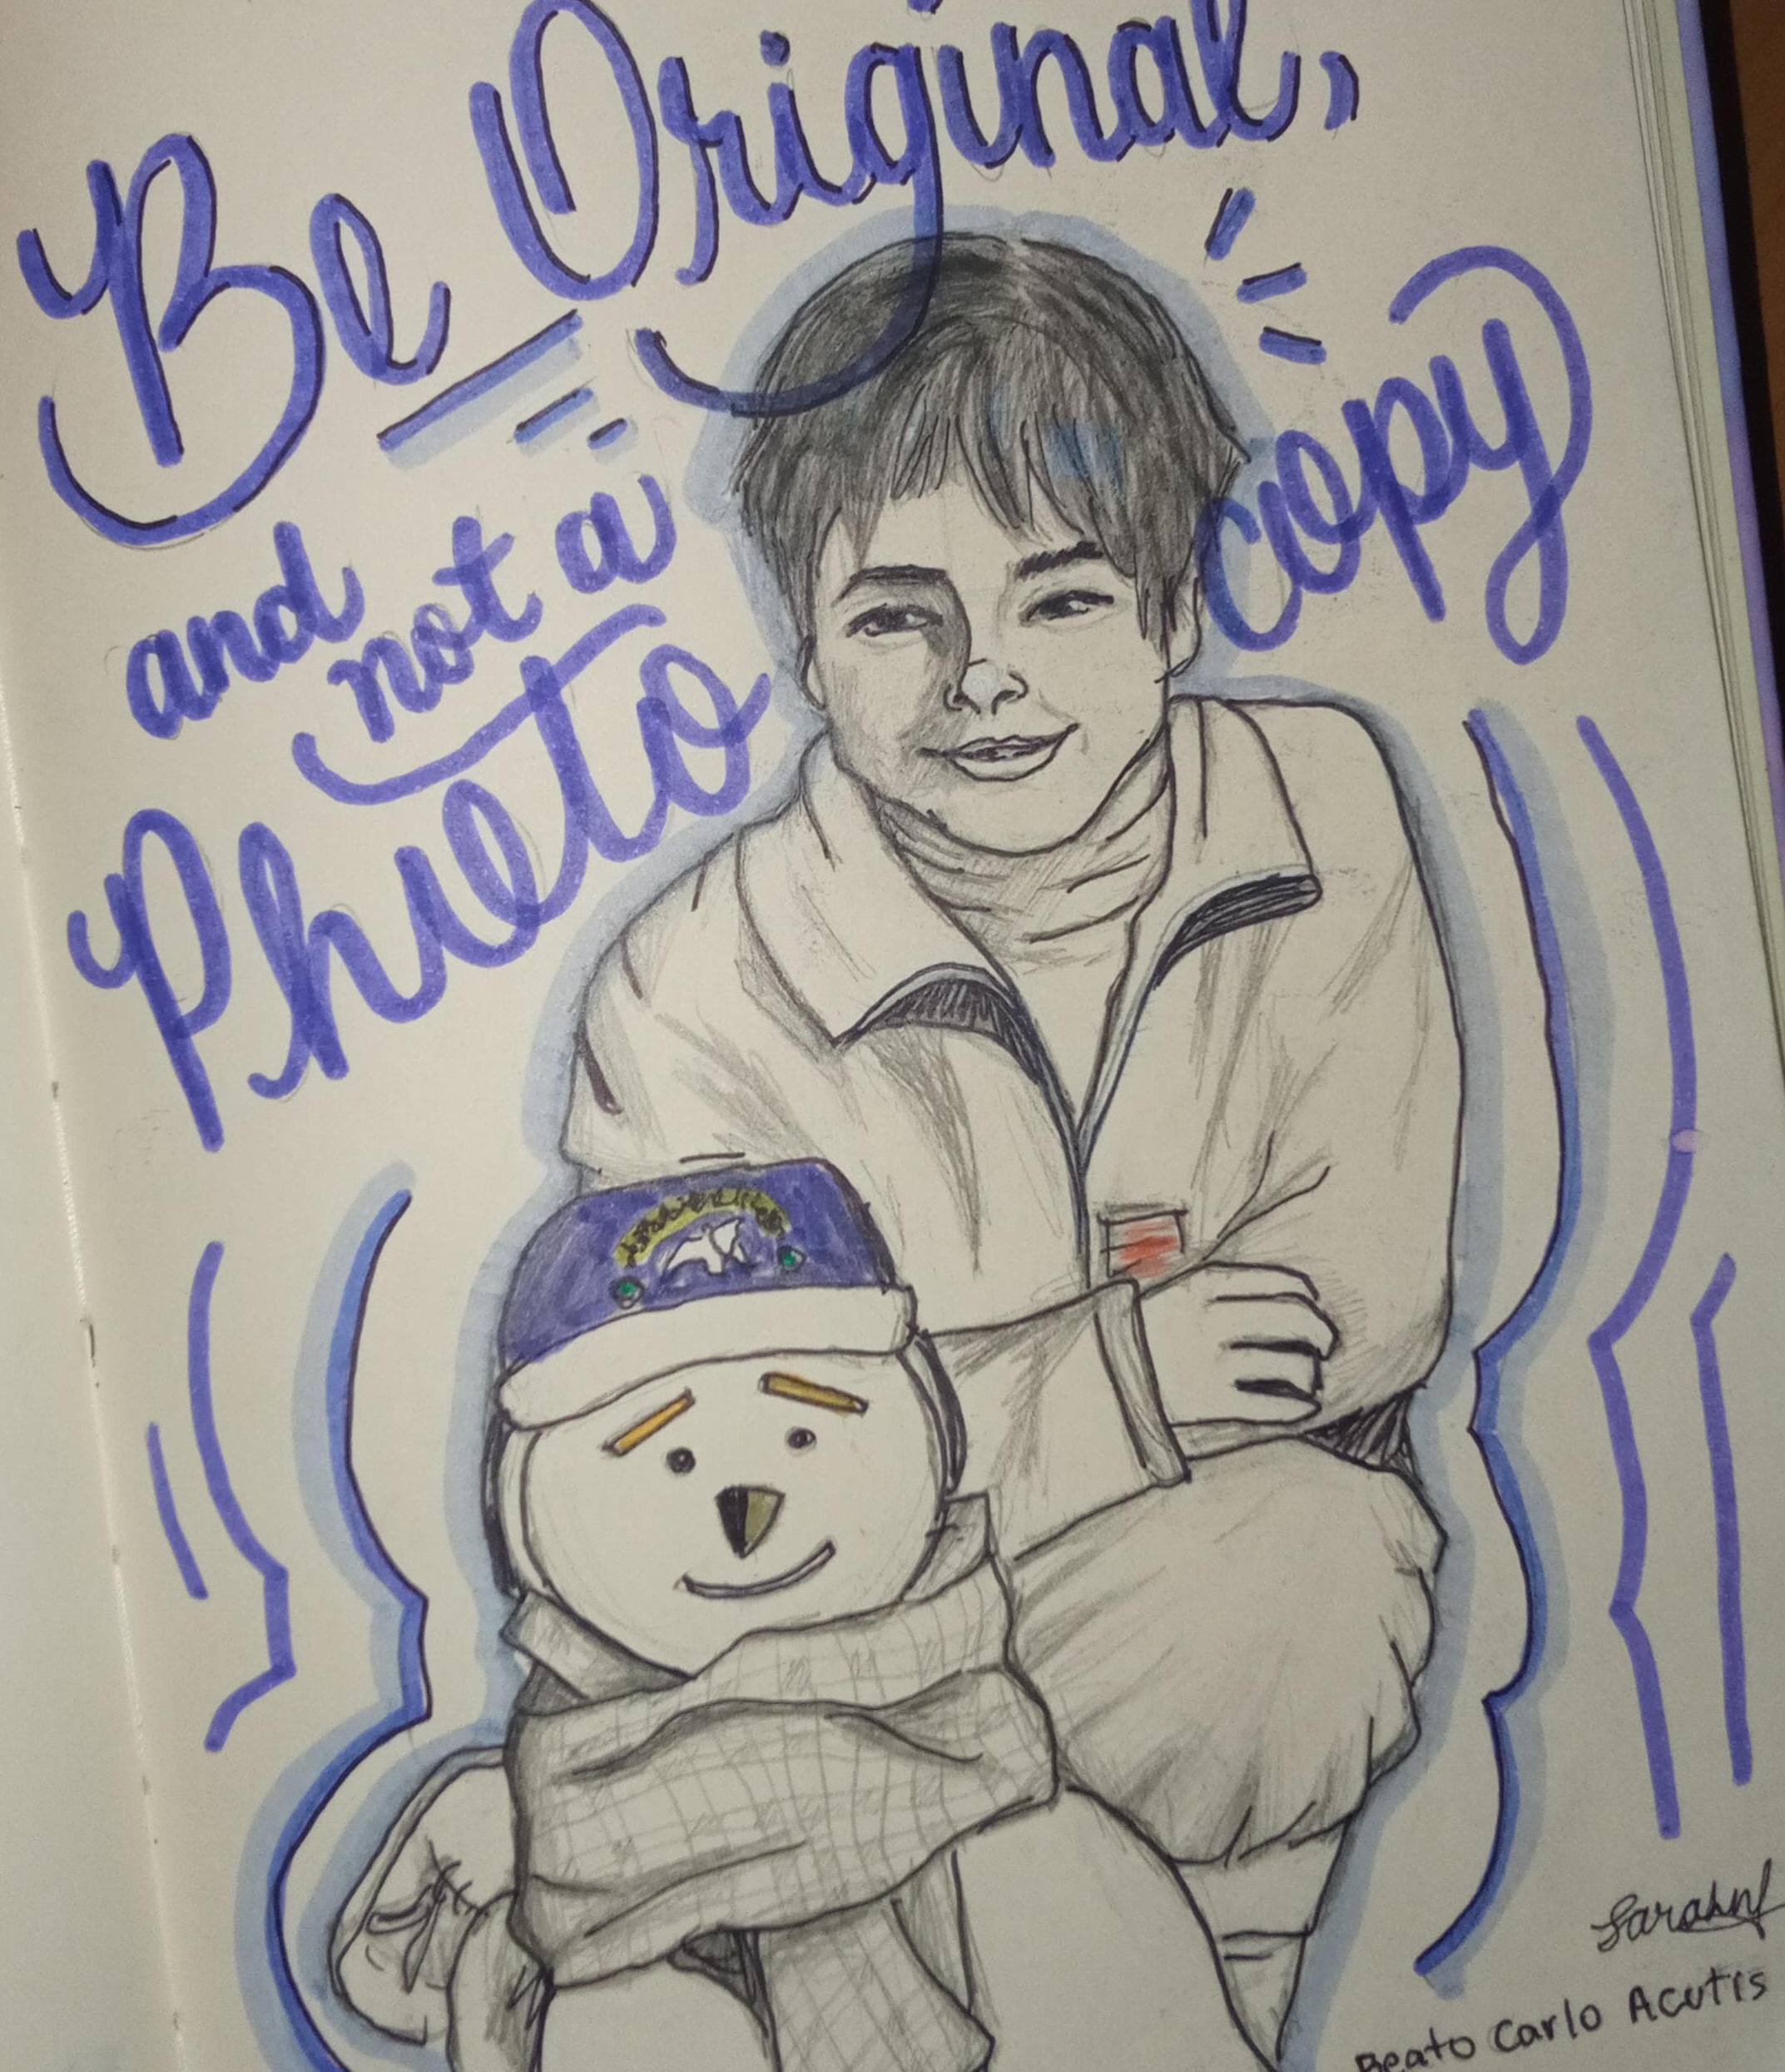 Be Original,
and
not a
Photo
copy
Beato Carlo Acutis